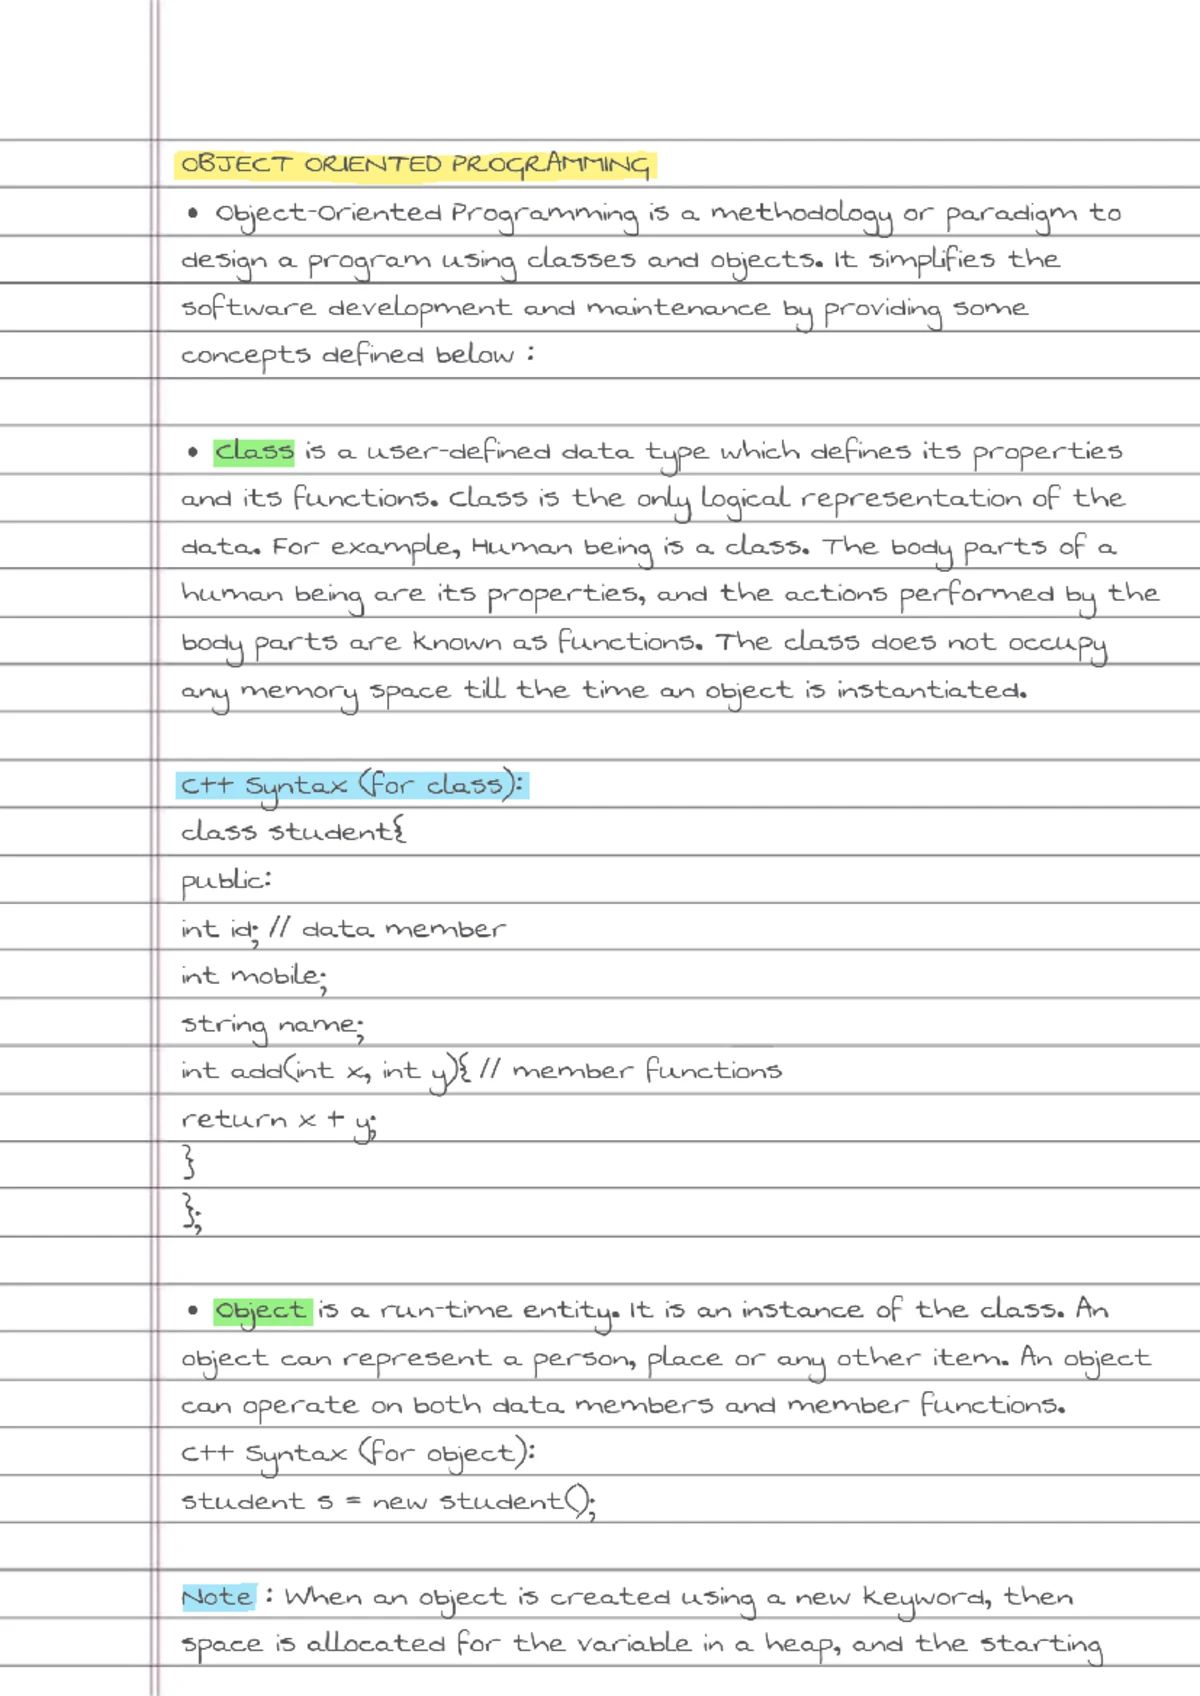 OBJECT ORIENTED PROGRAMMING
• Object-Oriented Programming is a methodology or paradigm to
design a program using classes and objects. It simplifies the
software development and maintenance by providing some
concepts defined below :
• Class is a user-defined data type which defines its properties
and its functions. Class is the only logical representation of the
data. For example, Human being is a class. The body parts of a
human being are its properties, and the actions performed by the
body parts are known as functions. The class does not occupy
any memory space till the time an object is instantiated.
C++ Syntax (for class):
class student{
public:
int id; // data member
int mobile;
string name;
int add(int x, int y){ // member functions
return x + y;
}
};
• Object is a run-time entity. It is an instance of the class. An
object can represent a person, place or any other item. An object
can operate on both data members and member functions.
C++ Syntax (for object):
student s = new student();
Note : When an object is created using a new keyword, then
space is allocated for the variable in a heap, and the starting